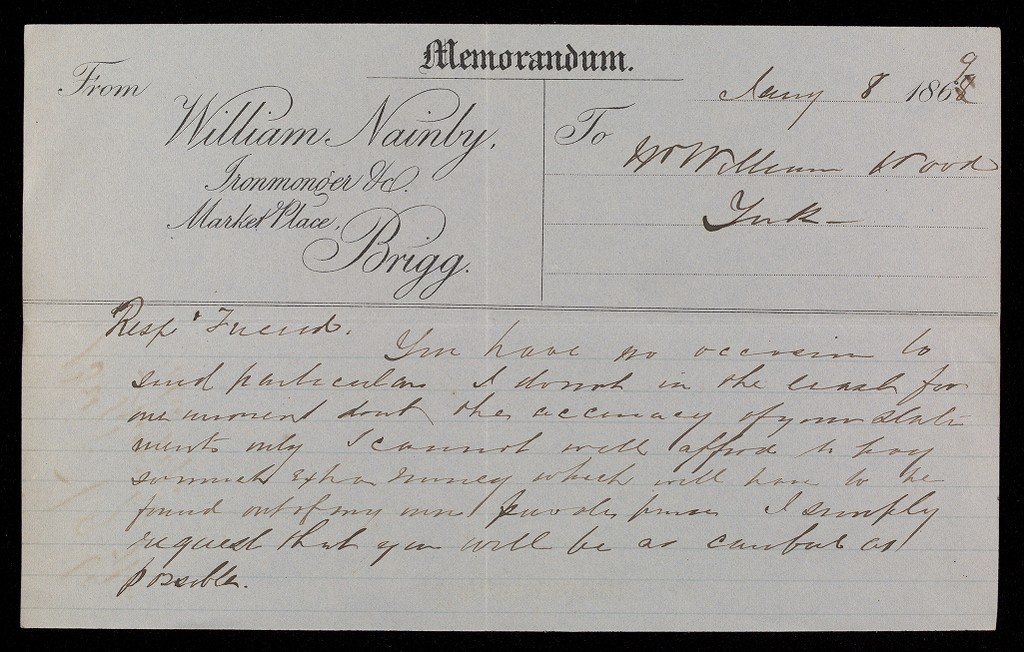 Memorandum.
From
William Nainby,
Ironmonger &c.
Market Place,
Brigg.
Jany 8 1869
To
Mr William Wood
York
Resp Friend.
You have no occasion to
send particulars I do not in the least for
one moment doubt the accuracy of your state
ments only I cannot well afford to pay
so much extra money which will have to be
found out of my own private purse I simply
request that you will be as careful as
possible.